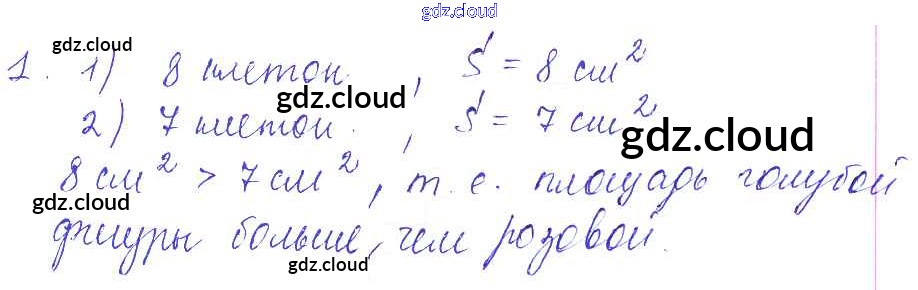 gdz.cloud
gdz.cloud
1. 1) 8 клеток, S = 8 см²
gdz.cloud
2) 7 клеток, S = 7 см²
gdz.cloud
8 см² > 7 см², т.е. площадь голубой
gdz.cloud
фигуры больше, чем розовой.
gdz.cloud